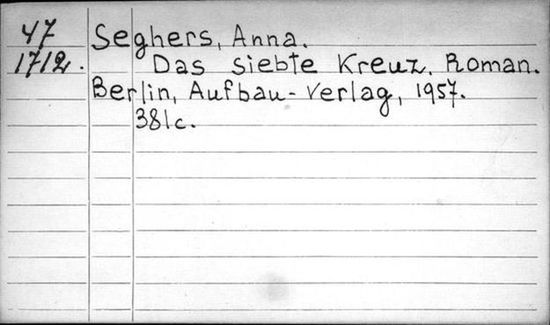 47 Seghers, Anna.
1712. Das siebte Kreuz. Roman.
Berlin, Aufbau-Verlag, 1957.
381c.